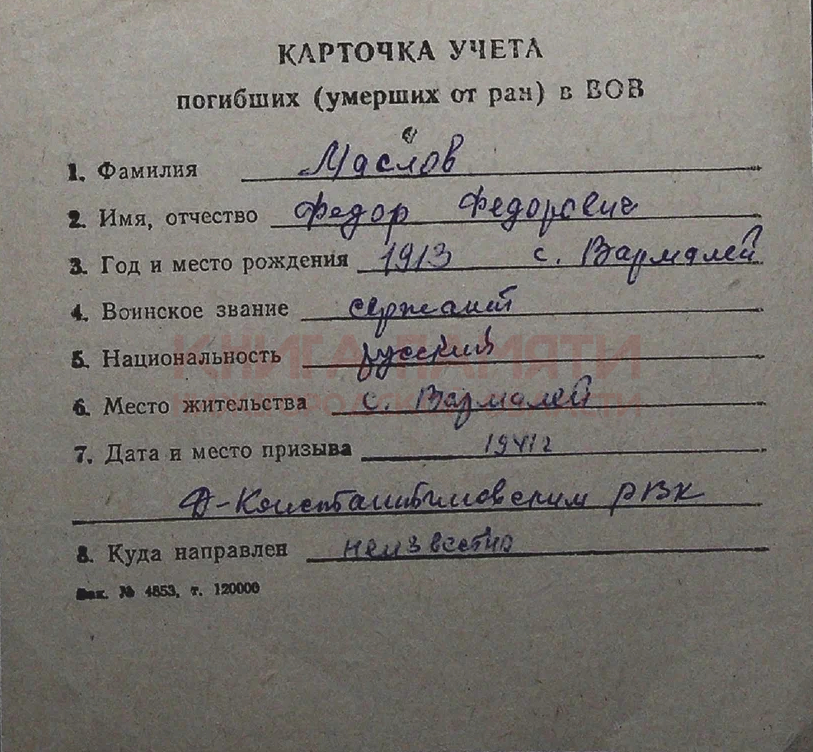 КАРТОЧКА УЧЕТА
погибших (умерших от ран) в ВОВ
1. Фамилия Маслов
2. Имя, отчество Федор Федорович
3. Год и место рождения 1913 с. Вармалей
4. Воинское звание сержант
5. Национальность русский
КНИГА ПАМЯТИ
6. Место жительства с. Вармалей
7. Дата и место призыва 1941г
Д-Константиновским РВК
8. Куда направлен неизвестно
Зак. № 4853, т. 120000